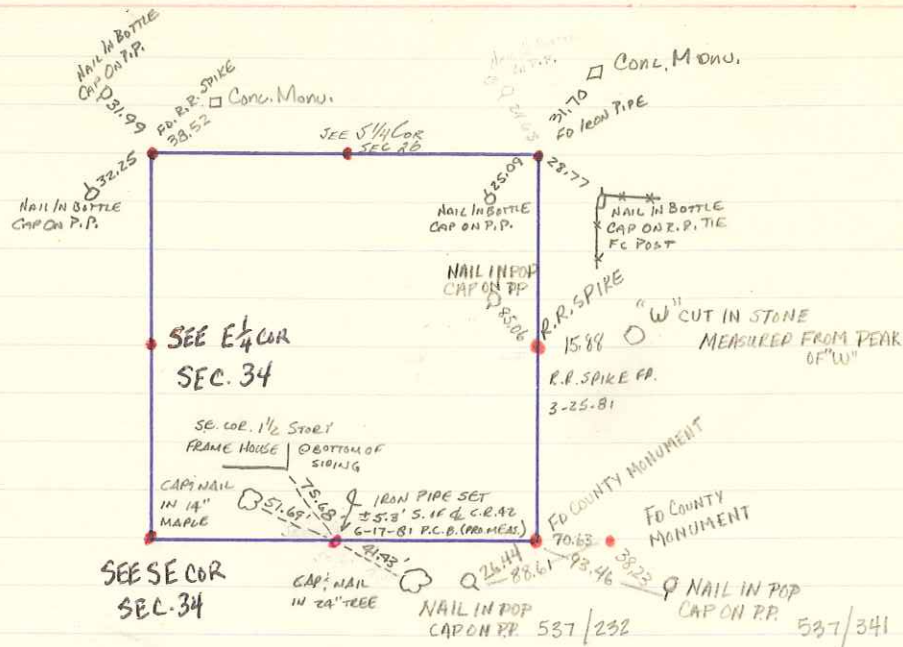 NAIL IN BOTTLE
CAP ON P.P.
31.99
FD. R.R. SPIKE
38.52
Conc. Monu.
32.25
NAIL IN BOTTLE
CAP ON P.P.
SEE S 1/4 COR
SEC 26
Conc. Monu.
31.70
FD IRON PIPE
25.09
NAIL IN BOTTLE
CAP ON P.P.
28.77
NAIL IN BOTTLE
CAP ON R.R. TIE
FC POST
NAIL IN POP
CAP ON PP
85.06
R.R. SPIKE
15.88
"W" CUT IN STONE
MEASURED FROM PEAK
OF "W"
R.R. SPIKE FD.
3-25-81
SEE E 1/4 COR
SEC. 34
SE. COR. 1 1/2 STORY
FRAME HOUSE
@ BOTTOM OF
SIDING
CAP & NAIL
IN 14"
MAPLE
51.69'
75.68
IRON PIPE SET
± 5.3' S. OF ℄ C.R. 42
6-17-81 P.C.B. (PRO MEAS.)
41.43'
CAP & NAIL
IN 24" TREE
SEE SE COR
SEC. 34
FD COUNTY MONUMENT
70.63
FD COUNTY
MONUMENT
26.44
88.61
93.46
38.23
NAIL IN POP
CAP ON P.P.
537/232
NAIL IN POP
CAP ON P.P.
537/341